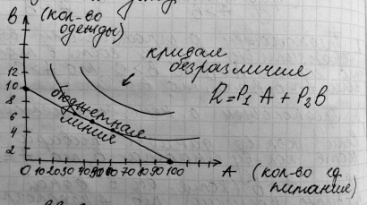 B (кол-во
одежды)
кривая
безразличия
R=P₁ A + P₂B
12
10
8
6
4
2
бюджетная
линия
0 10 20 30 40 50 60 70 80 90 100
A (кол-во ед.
питания)